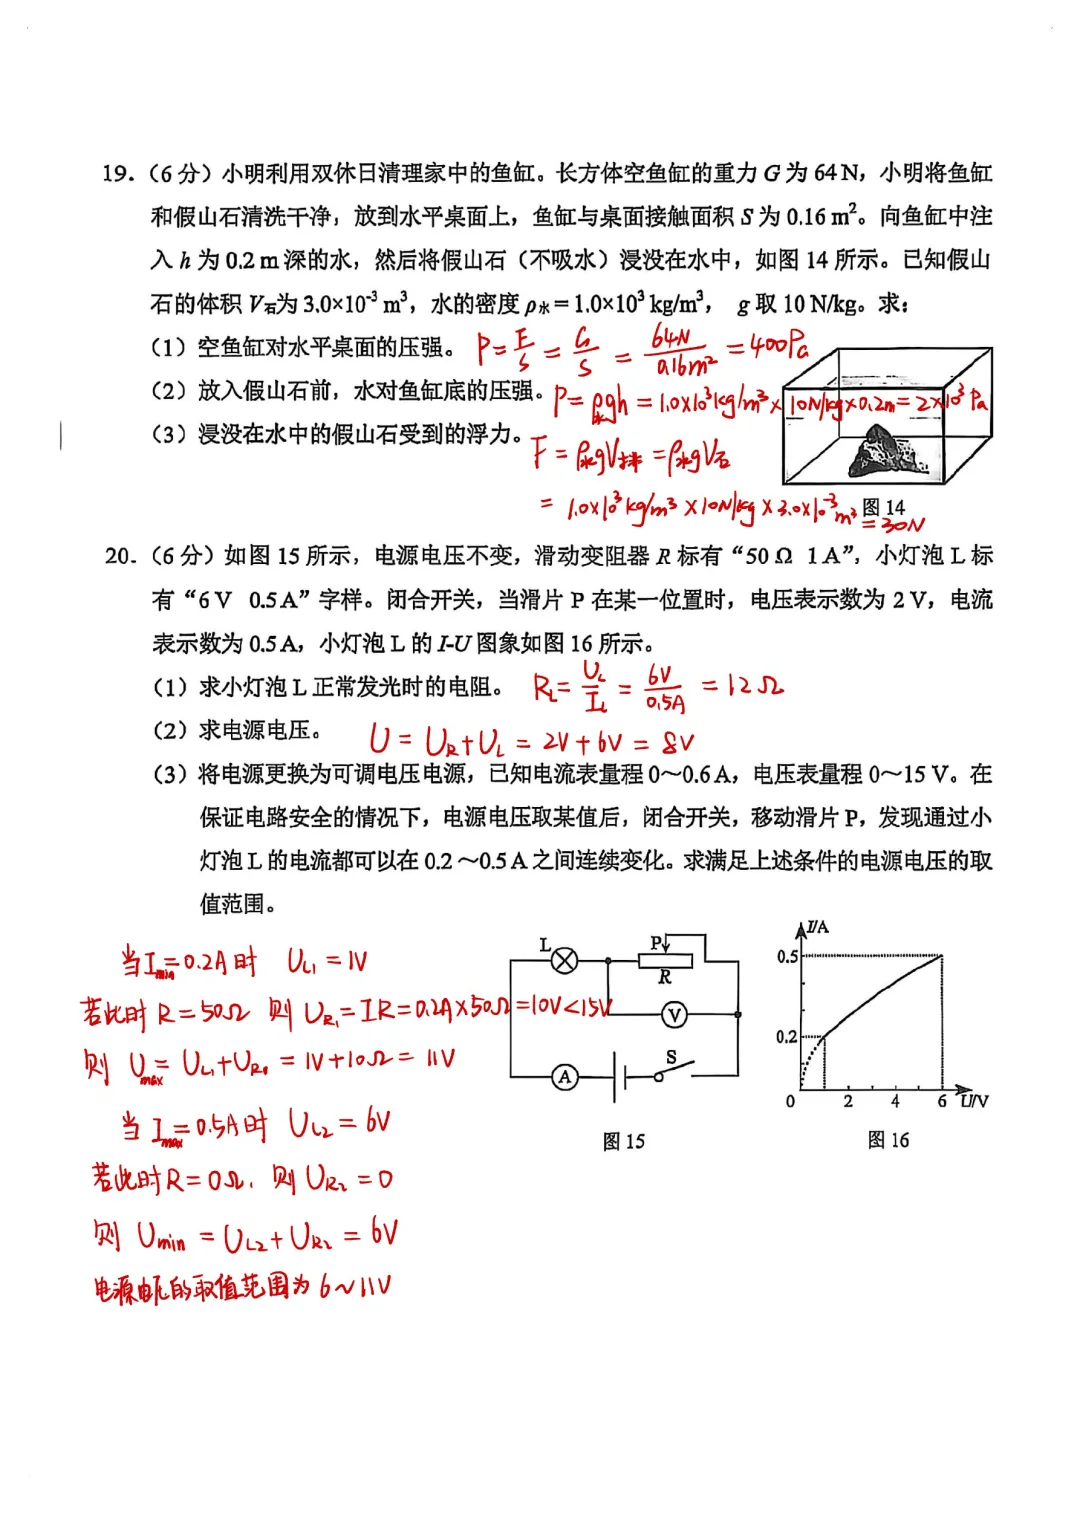 19.（6分）小明利用双休日清理家中的鱼缸。长方体空鱼缸的重力 G 为 64 N，小明将鱼缸
和假山石清洗干净，放到水平桌面上，鱼缸与桌面接触面积 S 为 0.16 m²。向鱼缸中注
入 h 为 0.2 m 深的水，然后将假山石（不吸水）浸没在水中，如图 14 所示。已知假山
石的体积 V石为 3.0×10⁻³ m³，水的密度 ρ水＝1.0×10³ kg/m³， g 取 10 N/kg。求：
（1）空鱼缸对水平桌面的压强。 P=F/S = G/S = 64N/0.16m² = 400Pa
（2）放入假山石前，水对鱼缸底的压强。 P=ρ水gh = 1.0×10³kg/m³×10N/kg×0.2m=2×10³Pa
（3）浸没在水中的假山石受到的浮力。 F=ρ水gV排=ρ水gV石
= 1.0×10³kg/m³×10N/kg×3.0×10⁻³m³=30N
图 14
20.（6分）如图 15 所示，电源电压不变，滑动变阻器 R 标有“50 Ω 1 A”，小灯泡 L 标
有“6 V 0.5 A”字样。闭合开关，当滑片 P 在某一位置时，电压表示数为 2 V，电流
表示数为 0.5 A，小灯泡 L 的 I-U 图象如图 16 所示。
（1）求小灯泡 L 正常发光时的电阻。 RL=UL/IL = 6V/0.5A = 12Ω
（2）求电源电压。 U=UR+UL=2V+6V=8V
（3）将电源更换为可调电压电源，已知电流表量程 0～0.6 A，电压表量程 0～15 V。在
保证电路安全的情况下，电源电压取某值后，闭合开关，移动滑片 P，发现通过小
灯泡 L 的电流都可以在 0.2～0.5 A 之间连续变化。求满足上述条件的电源电压的取
值范围。
当Imin=0.2A时 UL1=1V
若此时R=50Ω 则UR1=IR=0.2A×50Ω=10V<15V
则 Umax=UL1+UR1=1V+10Ω=11V
当Imax=0.5A时 UL2=6V
若此时R=0Ω，则UR2=0
则 Umin=UL2+UR2=6V
电源电压的取值范围为6~11V
L
P
R
V
S
A
图 15
I/A
0.5
0.2
0 2 4 6 U/V
图 16